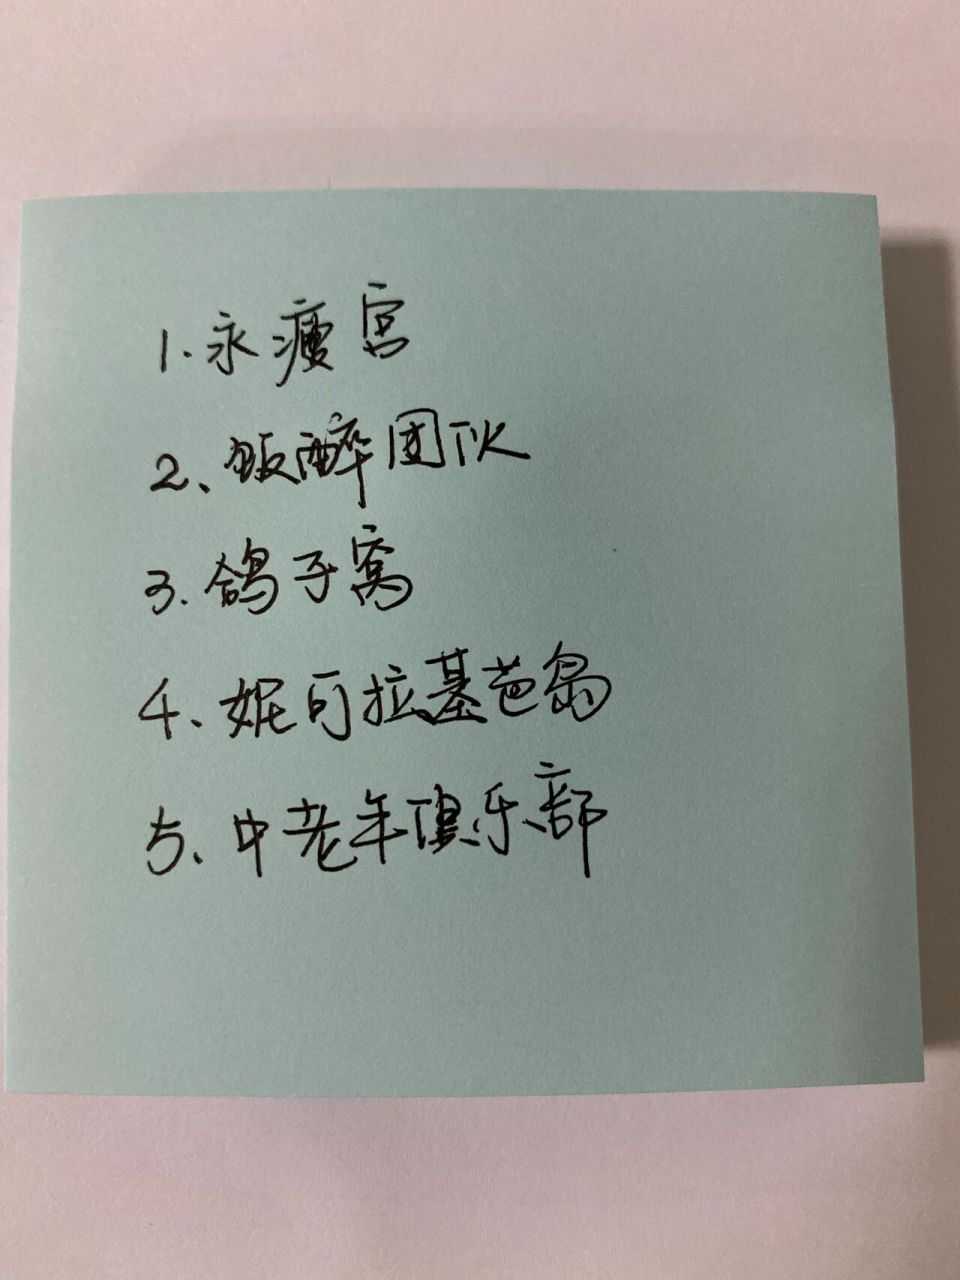 1.永瘦宫
2、饭醉团伙
3.鸽子窝
4、妮可拉基芭岛
5、中老年俱乐部